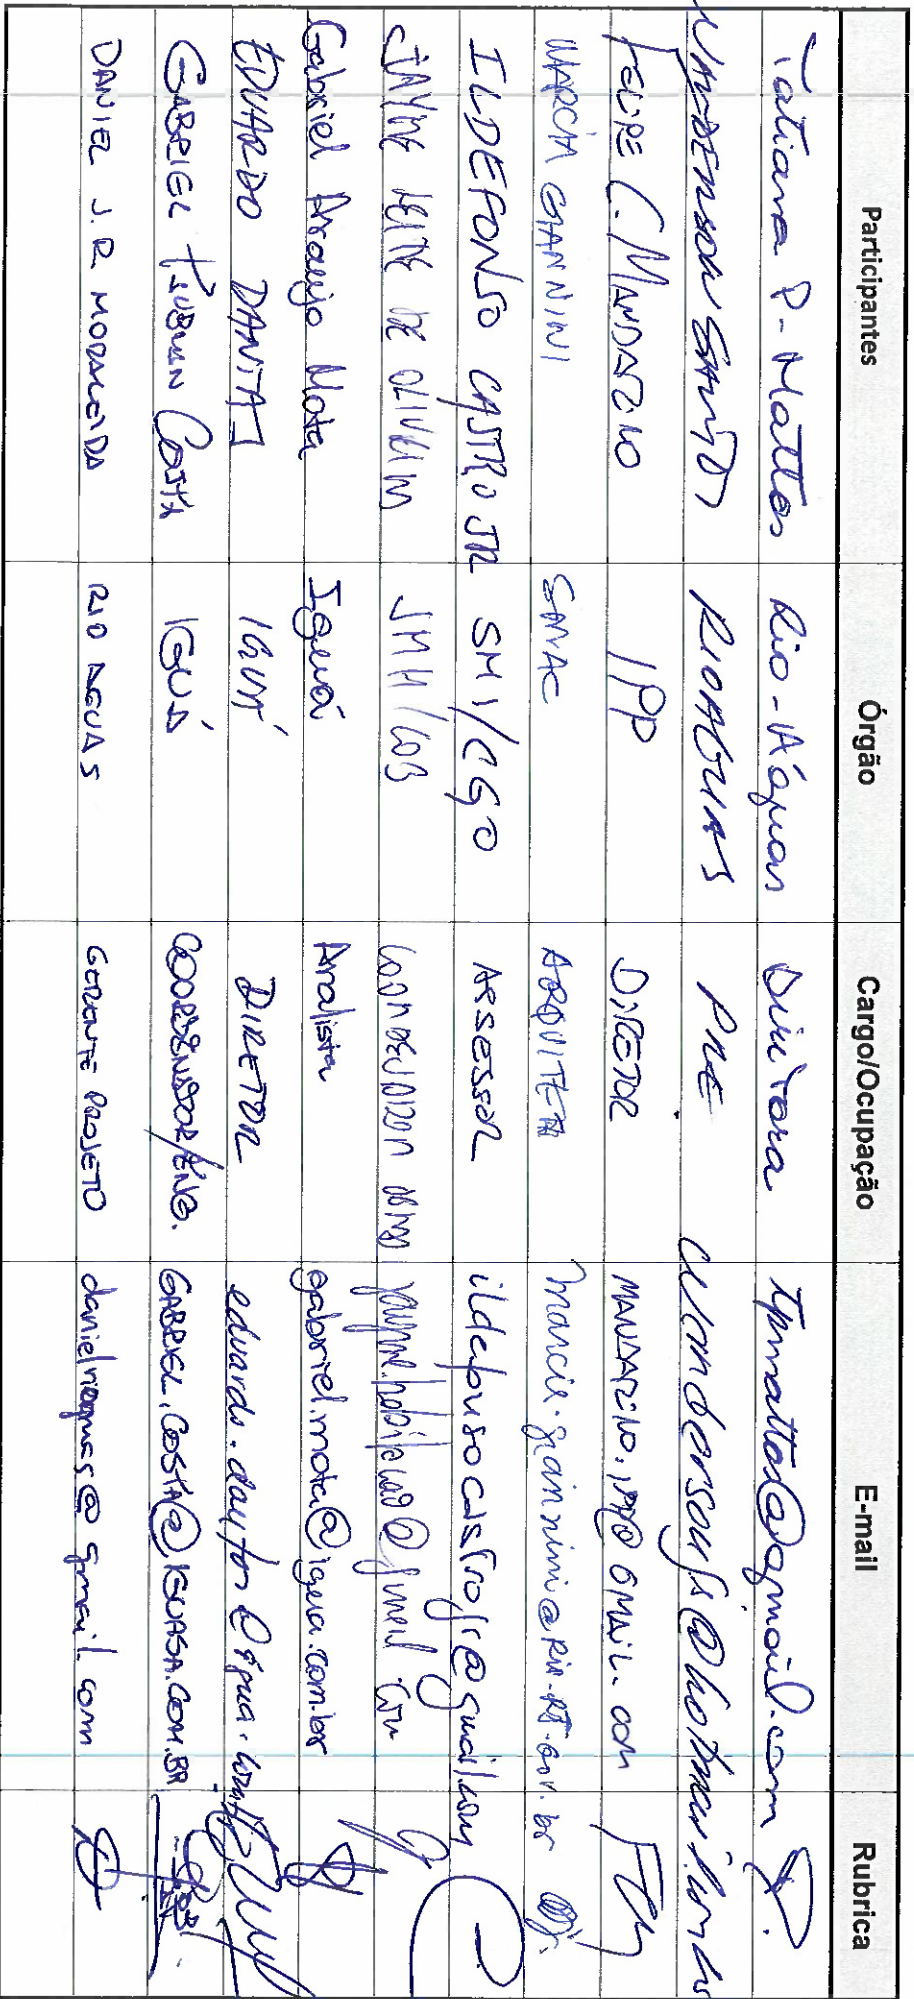 Participantes Órgão Cargo/Ocupação E-mail Rubrica
Tatiana P. Mattos Rio-Águas Diretora tpmattos@gmail.com
WANDERSON SANTOS RIOAGUAS wandersonfs@hotmail.com.br
FELIPE C. MANDARINO IPP DIRETOR MANDARINO.IPP@GMAIL.COM FCM
MARCIA GIANNINI ARQUITETA marcia.giannini@rio.rj.gov.br
ILDEFONSO CASTRO JR SMI/CGO ASSESSOR ildefonsocastrojr@gmail.com
JAYME LEITE DE OLIVEIRA
Gabriel Araujo Mota Iguá Analista gabriel.mota@igua.com.br
EDUARDO DANTAS IGUÁ DIRETOR
GABRIEL COSTA IGUÁ COORDENADOR/ENG. GABRIEL.COSTA@IGUASA.COM.BR
DANIEL J.R. RIO AGUAS GERENTE PROJETO danielrioaguas@gmail.com